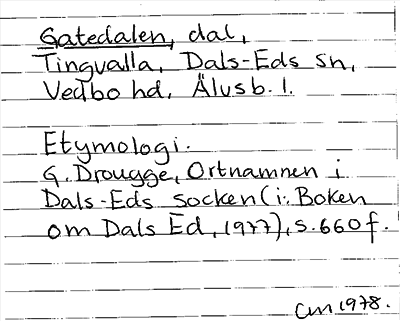 Gatedalen, dal,
Tingvalla, Dals-Eds sn,
Vedbo hd, Älvsb. l.
Etymologi.
G. Drougge, Ortnamnen i
Dals-Eds socken (i: Boken
om Dals Ed, 1977), s. 660 f.
CM 1978.